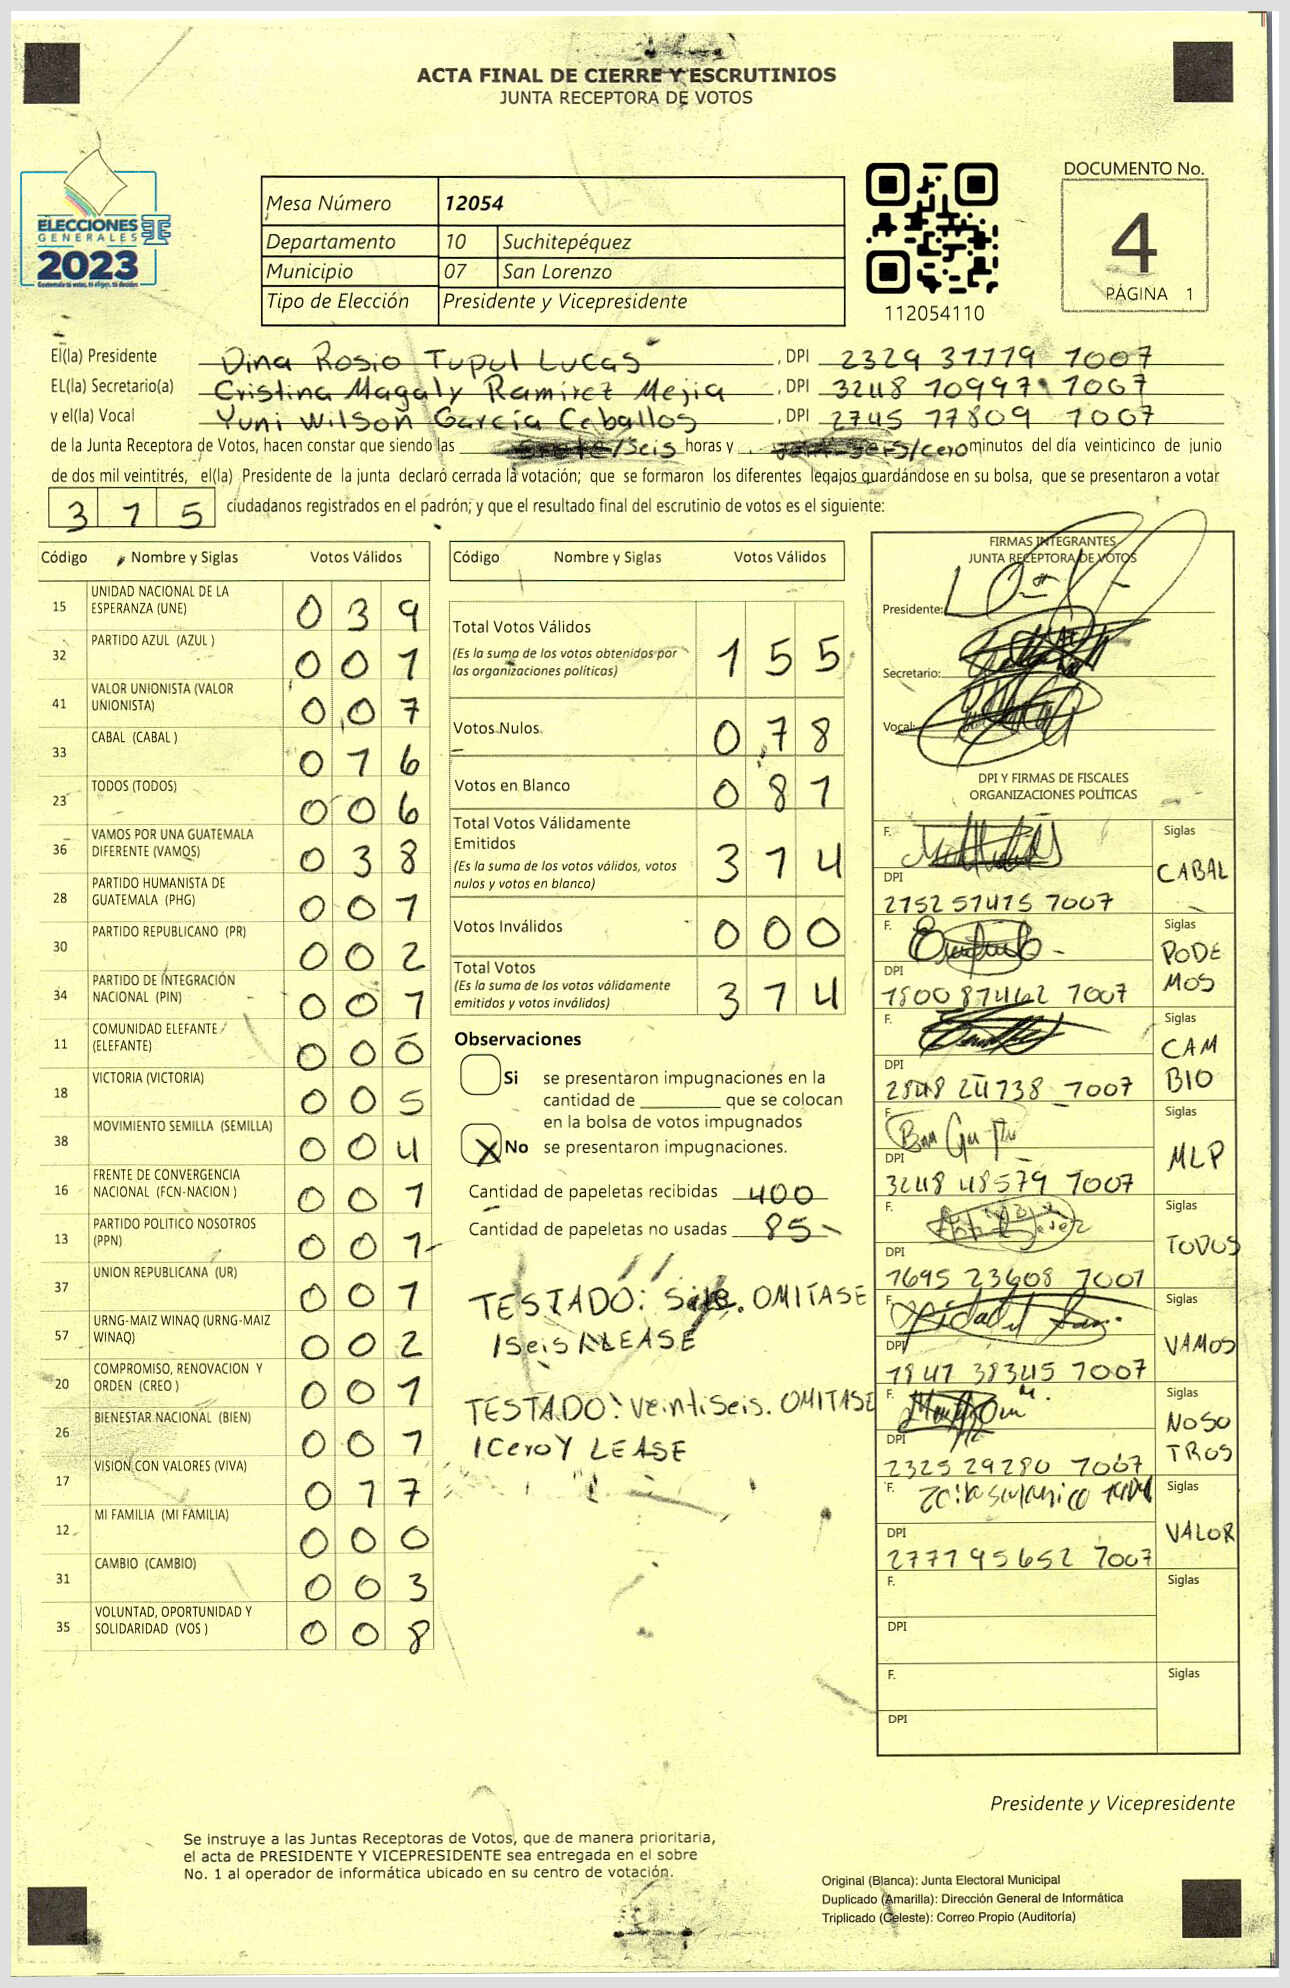 ACTA FINAL DE CIERRE Y ESCRUTINIOS
JUNTA RECEPTORA DE VOTOS
ELECCIONES
GENERALES
2023
Mesa Número 12054
Departamento 10 Suchitepéquez
Municipio 07 San Lorenzo
Tipo de Elección Presidente y Vicepresidente
112054110
DOCUMENTO No.
4
PÁGINA 1
El(la) Presidente Dina Rosio Tupul Lucas , DPI 2329 31119 1007
EL(la) Secretario(a) Cristina Magaly Ramírez Mejia , DPI 3248 10997 1007
y el(la) Vocal Yuni Wilson García Ceballos , DPI 2745 17809 1007
de la Junta Receptora de Votos, hacen constar que siendo las /seis horas y /cero minutos del día veinticinco de junio
de dos mil veintitrés, el(la) Presidente de la junta declaró cerrada la votación; que se formaron los diferentes legajos guardándose en su bolsa, que se presentaron a votar
315 ciudadanos registrados en el padrón; y que el resultado final del escrutinio de votos es el siguiente:
Código Nombre y Siglas Votos Válidos
15 UNIDAD NACIONAL DE LA ESPERANZA (UNE) 039
32 PARTIDO AZUL (AZUL ) 001
41 VALOR UNIONISTA (VALOR UNIONISTA) 007
33 CABAL (CABAL ) 016
23 TODOS (TODOS) 006
36 VAMOS POR UNA GUATEMALA DIFERENTE (VAMOS) 038
28 PARTIDO HUMANISTA DE GUATEMALA (PHG) 001
30 PARTIDO REPUBLICANO (PR) 002
34 PARTIDO DE INTEGRACIÓN NACIONAL (PIN) 001
11 COMUNIDAD ELEFANTE (ELEFANTE) 000
18 VICTORIA (VICTORIA) 005
38 MOVIMIENTO SEMILLA (SEMILLA) 004
16 FRENTE DE CONVERGENCIA NACIONAL (FCN-NACION ) 001
13 PARTIDO POLITICO NOSOTROS (PPN) 001
37 UNION REPUBLICANA (UR) 001
57 URNG-MAIZ WINAQ (URNG-MAIZ WINAQ) 002
20 COMPROMISO, RENOVACION Y ORDEN (CREO ) 001
26 BIENESTAR NACIONAL (BIEN) 001
17 VISION CON VALORES (VIVA) 017
12 MI FAMILIA (MI FAMILIA) 000
31 CAMBIO (CAMBIO) 003
35 VOLUNTAD, OPORTUNIDAD Y SOLIDARIDAD (VOS ) 008
Código Nombre y Siglas Votos Válidos
Total Votos Válidos 155
(Es la suma de los votos obtenidos por
las organizaciones políticas)
Votos Nulos 078
Votos en Blanco 081
Total Votos Válidamente
Emitidos 314
(Es la suma de los votos válidos, votos
nulos y votos en blanco)
Votos Inválidos 000
Total Votos 314
(Es la suma de los votos válidamente
emitidos y votos inválidos)
Observaciones
Si se presentaron impugnaciones en la
cantidad de ________ que se colocan
en la bolsa de votos impugnados
X No se presentaron impugnaciones.
Cantidad de papeletas recibidas 400
Cantidad de papeletas no usadas 85
TESTADO: OMITASE
/Seis/ LEASE
TESTADO: veintiseis. OMITASE
/Cero/ LEASE
FIRMAS INTEGRANTES
JUNTA RECEPTORA DE VOTOS
Presidente:
Secretario:
Vocal:
DPI Y FIRMAS DE FISCALES
ORGANIZACIONES POLÍTICAS
F. Siglas CABAL
DPI 2152 51415 1007
F. Siglas PODEMOS
DPI 1800 87462 1007
F. Siglas CAMBIO
DPI 1007
F. Siglas MLP
DPI 3248 48579 1007
F. Siglas TODOS
DPI 1695 23608 1001
F. Siglas VAMOS
DPI 1841 38345 1007
F. Siglas NOSOTROS
DPI 2325 29280 1007
F. Siglas VALOR
DPI 2777 95652 1007
F. Siglas
DPI
F. Siglas
DPI
Presidente y Vicepresidente
Se instruye a las Juntas Receptoras de Votos, que de manera prioritaria,
el acta de PRESIDENTE Y VICEPRESIDENTE sea entregada en el sobre
No. 1 al operador de informática ubicado en su centro de votación.
Original (Blanca): Junta Electoral Municipal
Duplicado (Amarilla): Dirección General de Informática
Triplicado (Celeste): Correo Propio (Auditoría)